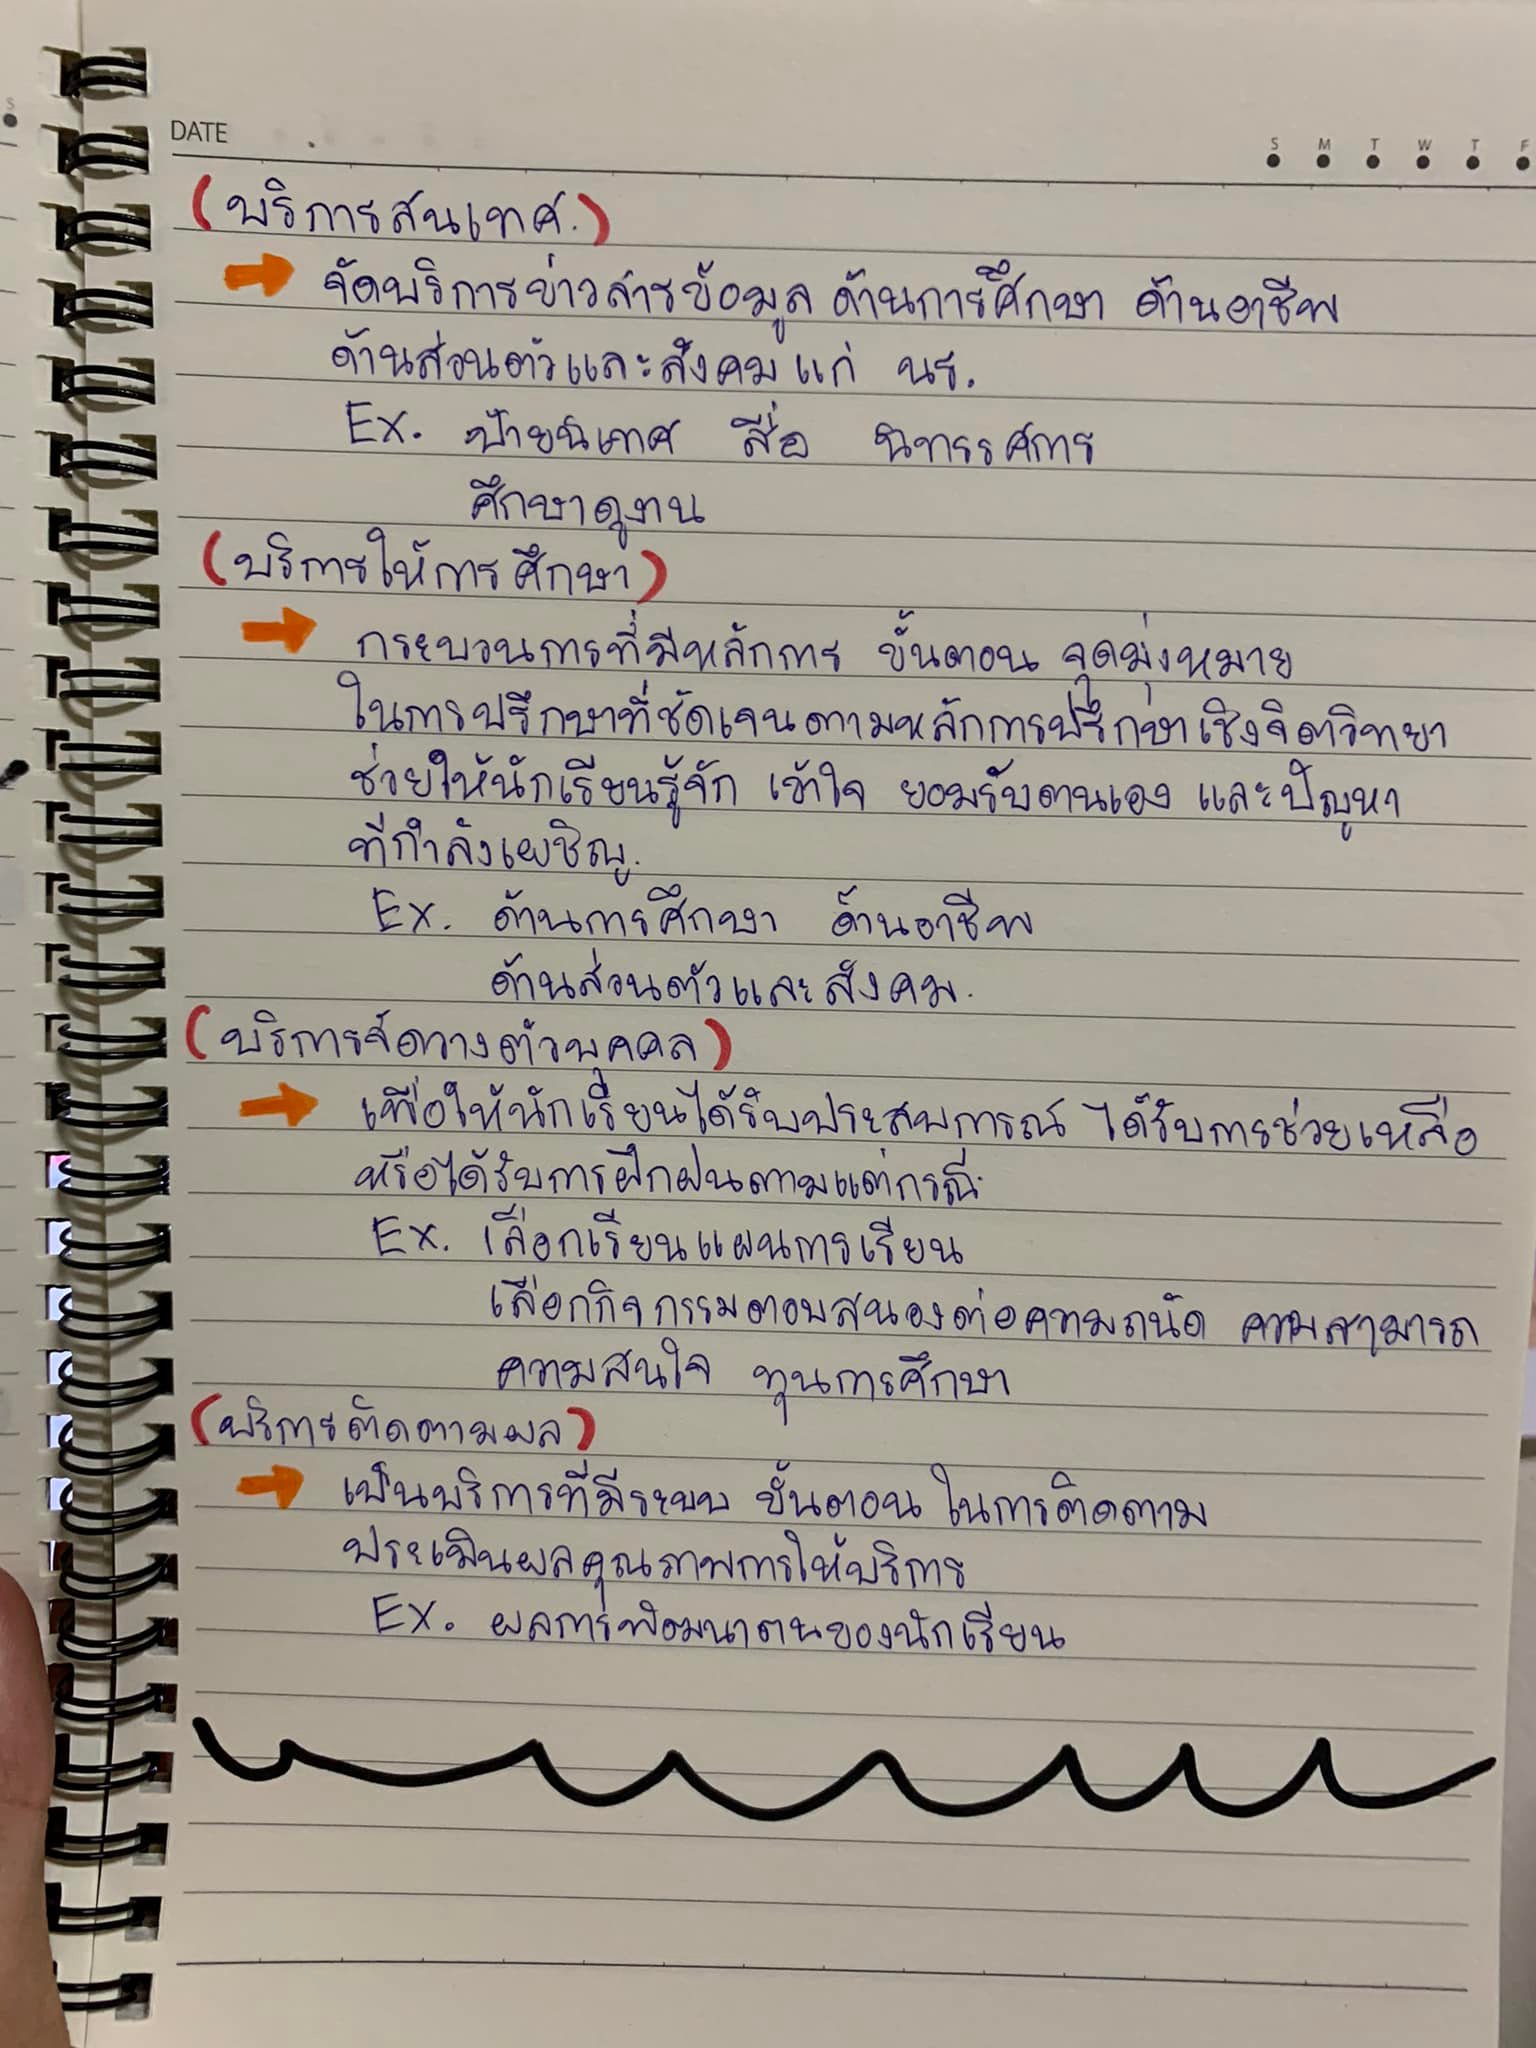 S
DATE
S M T W T F
(บริการสนเทศ.)
จัดบริการข่าวสารข้อมูล ด้านการศึกษา ด้านอาชีพ
ด้านส่วนตัวและสังคมแก่ นร.
Ex. ป้ายนิเทศ สื่อ นิทรรศการ
ศึกษาดูงาน
(บริการให้การศึกษา)
กระบวนการที่มีหลักการ ขั้นตอน จุดมุ่งหมาย
ในการปรึกษาที่ชัดเจนตามหลักการปรึกษาเชิงจิตวิทยา
ช่วยให้นักเรียนรู้จัก เข้าใจ ยอมรับตนเอง และปัญหา
ที่กำลังเผชิญ.
Ex. ด้านการศึกษา ด้านอาชีพ
ด้านส่วนตัวและสังคม.
(บริการจัดวางตัวบุคคล)
เพื่อให้นักเรียนได้รับประสบการณ์ ได้รับการช่วยเหลือ
หรือได้รับการฝึกฝนตามแต่กรณี.
Ex. เลือกเรียนแผนการเรียน
เลือกกิจกรรมตอบสนองต่อความถนัด ความสามารถ
ความสนใจ ทุนการศึกษา
(บริการติดตามผล)
เป็นบริการที่มีระบบ ขั้นตอน ในการติดตาม
ประเมินผลคุณภาพการให้บริการ
Ex. ผลการพัฒนาตนของนักเรียน